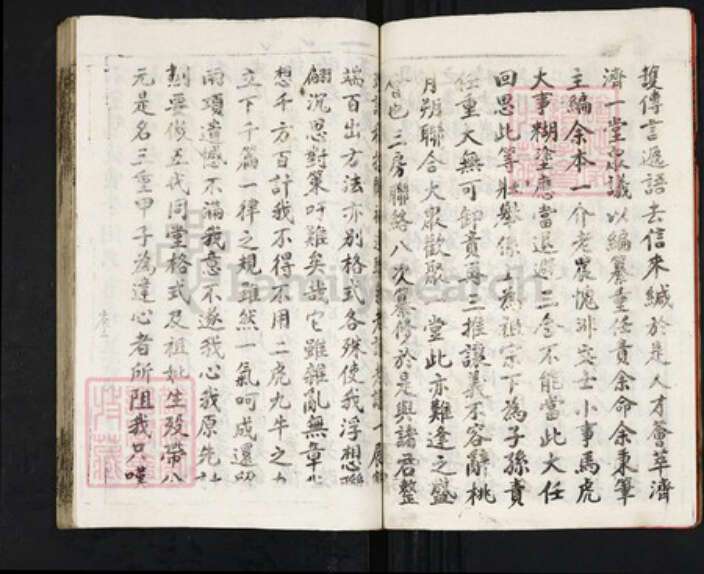 護傳言遞語去信來緘於是人才薈萃濟
濟一堂眾議以編纂重任責余命余秉筆
主編余本一介老農愧非實士小事馬虎
大事糊塗應當退避三舍不能當此大任
回思此等壯舉係上為祖宗下為子孫責
任重大無可卸責再三推讓義不容辭桃
月朔聯合大眾歡聚一堂此亦難逢之盛
會也三房聯絡八次纂修於是與諸君整
端百出方法亦別格式各殊使我浮想聯
翩沉思對策吁難矣哉它雖雜亂無章
想千方百計我不得不用二虎九牛之力
立下千篇一律之規雖然一氣呵成還留
兩項遺憾不滿我意不遂我心我原先計
劃要修五代同堂格式及祖妣生歿帶公
元是名三重甲子為違心者所阻我只嘆
FamilySearch